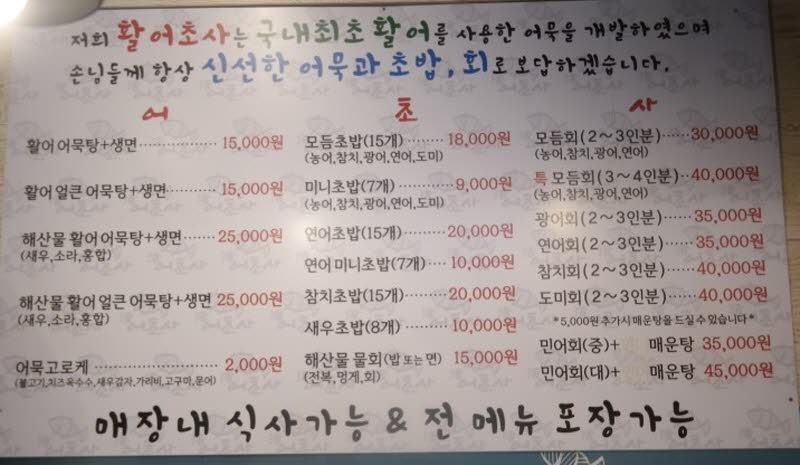 저희 활어초사는 국내최초 활어를 사용한 어묵을 개발하였으며
손님들께 항상 신선한 어묵과 초밥, 회로 보답하겠습니다.
어
활어 어묵탕+생면 15,000원
활어 얼큰 어묵탕+생면 15,000원
해산물 활어 어묵탕+생면 25,000원
(새우,소라,홍합)
해산물 활어 얼큰 어묵탕+생면 25,000원
(새우,소라,홍합)
어묵고로케 2,000원
(불고기,치즈옥수수,새우감자,가리비,고구마,문어)
초
모듬초밥(15개) 18,000원
(농어,참치,광어,연어,도미)
미니초밥(7개) 9,000원
(농어,참치,광어,연어,도미)
연어초밥(15개) 20,000원
연어 미니초밥(7개) 10,000원
참치초밥(15개) 20,000원
새우초밥(8개) 10,000원
해산물 물회(밥 또는 면) 15,000원
(전복,멍게,회)
사
모듬회(2~3인분) 30,000원
(농어,참치,광어,연어)
특 모듬회(3~4인분) 40,000원
(농어,참치,광어,연어)
광어회(2~3인분) 35,000원
연어회(2~3인분) 35,000원
참치회(2~3인분) 40,000원
도미회(2~3인분) 40,000원
*5,000원 추가시 매운탕을 드실 수 있습니다*
민어회(중)+ 매운탕 35,000원
민어회(대)+ 매운탕 45,000원
매장내 식사가능 & 전 메뉴 포장가능